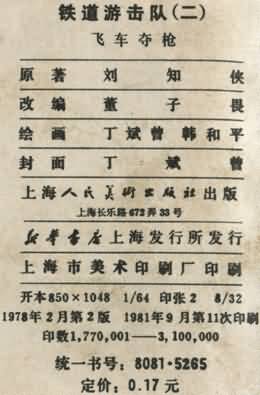 铁道游击队(二)
飞车夺枪
原著 刘知侠
改编 董子畏
绘画 丁斌曾 韩和平
封面 丁斌曾
上海人民美術出版社出版
上海长乐路672弄33号
新华书店上海发行所发行
上海市美术印刷厂印刷
开本850×1048 1/64 印张2 8/32
1978年2月第2版 1981年9月第11次印刷
印数1,770,001—3,100,000
统一书号:8081·5265
定价:0.17元